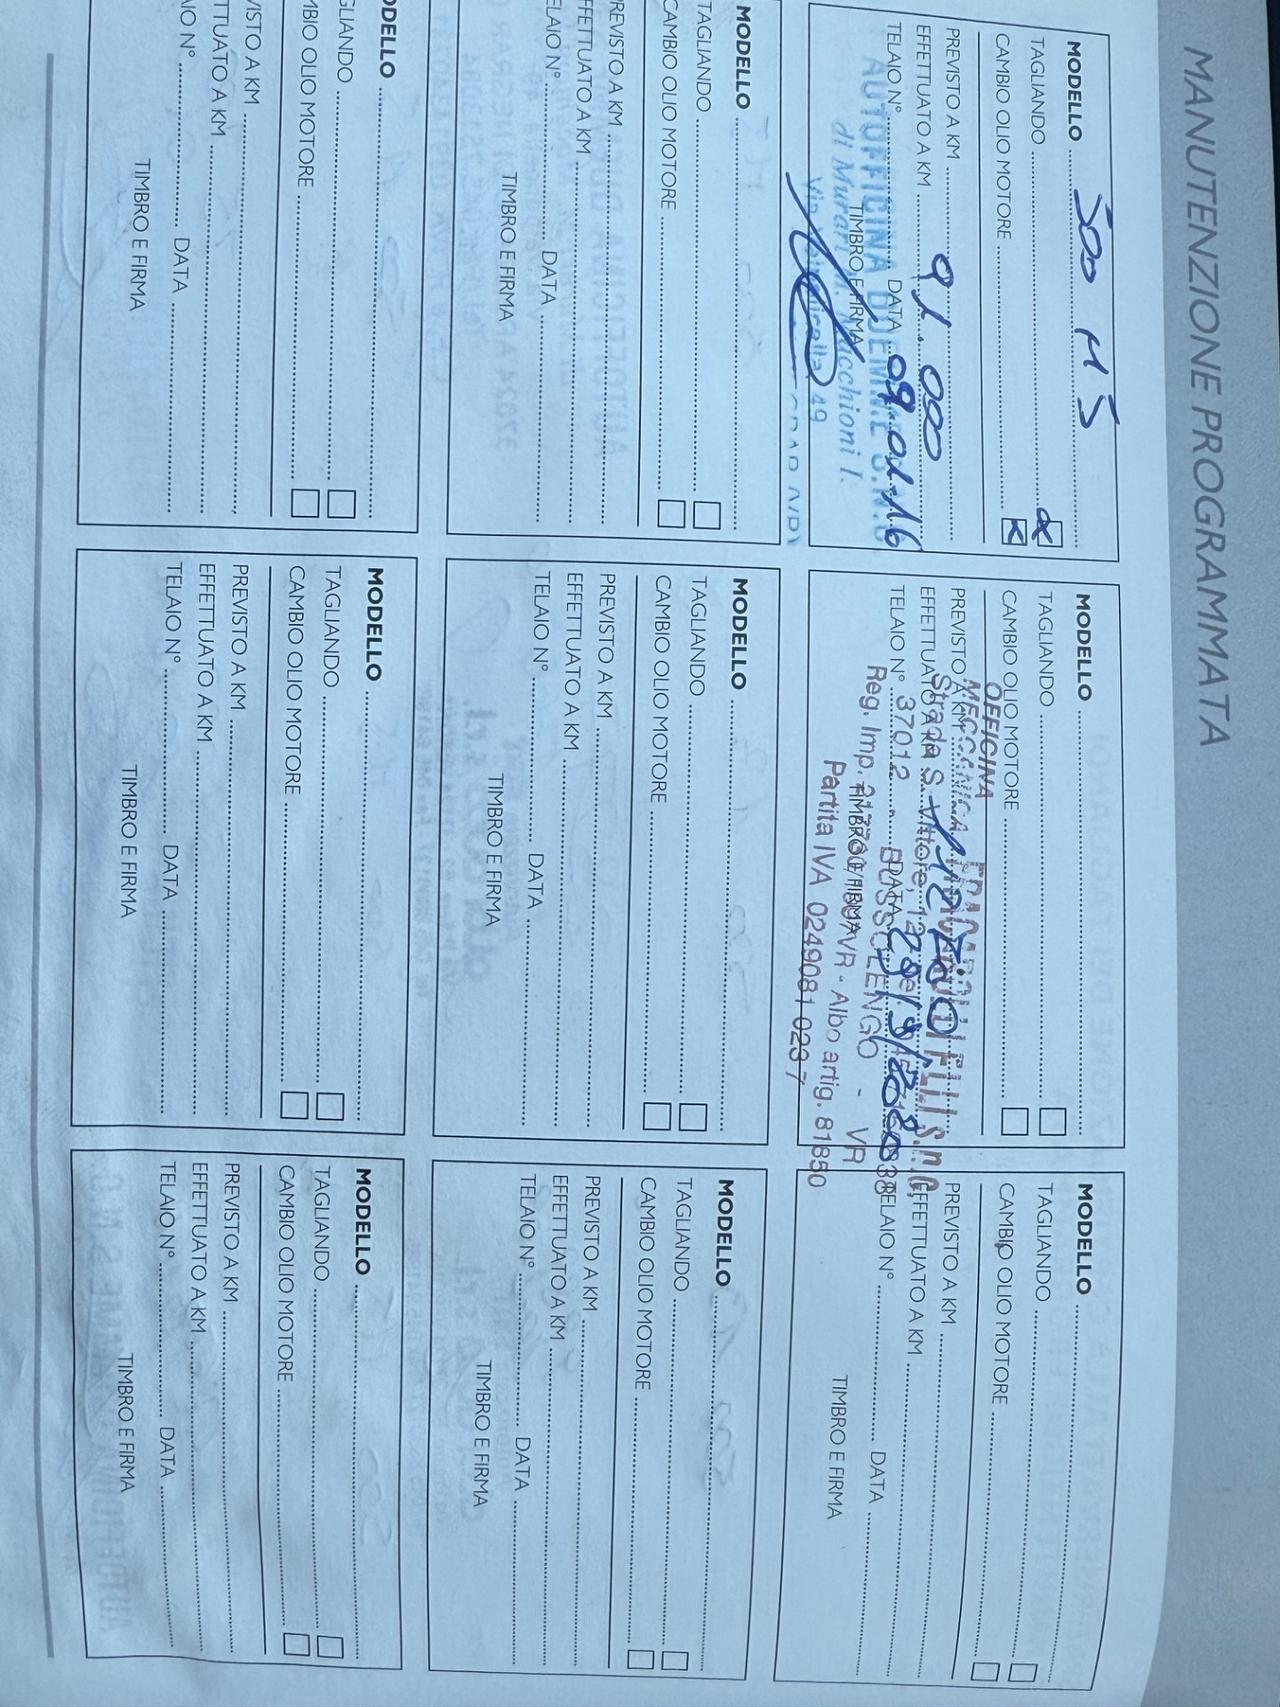 MANUTENZIONE PROGRAMMATA
MODELLO 500 MJ
TAGLIANDO
CAMBIO OLIO MOTORE
PREVISTO A KM
EFFETTUATO A KM 91.000
TELAIO N° DATA
TIMBRO E FIRMA
AUTOFFICINA
di
49
MODELLO
TAGLIANDO
CAMBIO OLIO MOTORE
PREVISTO A KM
EFFETTUATO A KM
TELAIO N° DATA
TIMBRO E FIRMA
OFFICINA
MECCANICA
Strada S. Vittore, 12
37012 BUSSOLENGO - VR
Reg. Imp. VR - Albo artig. 81850
Partita IVA 0249081 023 7
MODELLO
TAGLIANDO
CAMBIO OLIO MOTORE
PREVISTO A KM
EFFETTUATO A KM
TELAIO N° DATA
TIMBRO E FIRMA
MODELLO
TAGLIANDO
CAMBIO OLIO MOTORE
PREVISTO A KM
EFFETTUATO A KM
TELAIO N° DATA
TIMBRO E FIRMA
MODELLO
TAGLIANDO
CAMBIO OLIO MOTORE
PREVISTO A KM
EFFETTUATO A KM
TELAIO N° DATA
TIMBRO E FIRMA
MODELLO
TAGLIANDO
CAMBIO OLIO MOTORE
PREVISTO A KM
EFFETTUATO A KM
TELAIO N° DATA
TIMBRO E FIRMA
ODELLO
GLIANDO
MBIO OLIO MOTORE
VISTO A KM
TTUATO A KM
AIO N° DATA
TIMBRO E FIRMA
MODELLO
TAGLIANDO
CAMBIO OLIO MOTORE
PREVISTO A KM
EFFETTUATO A KM
TELAIO N° DATA
TIMBRO E FIRMA
MODELLO
TAGLIANDO
CAMBIO OLIO MOTORE
PREVISTO A KM
EFFETTUATO A KM
TELAIO N° DATA
TIMBRO E FIRMA